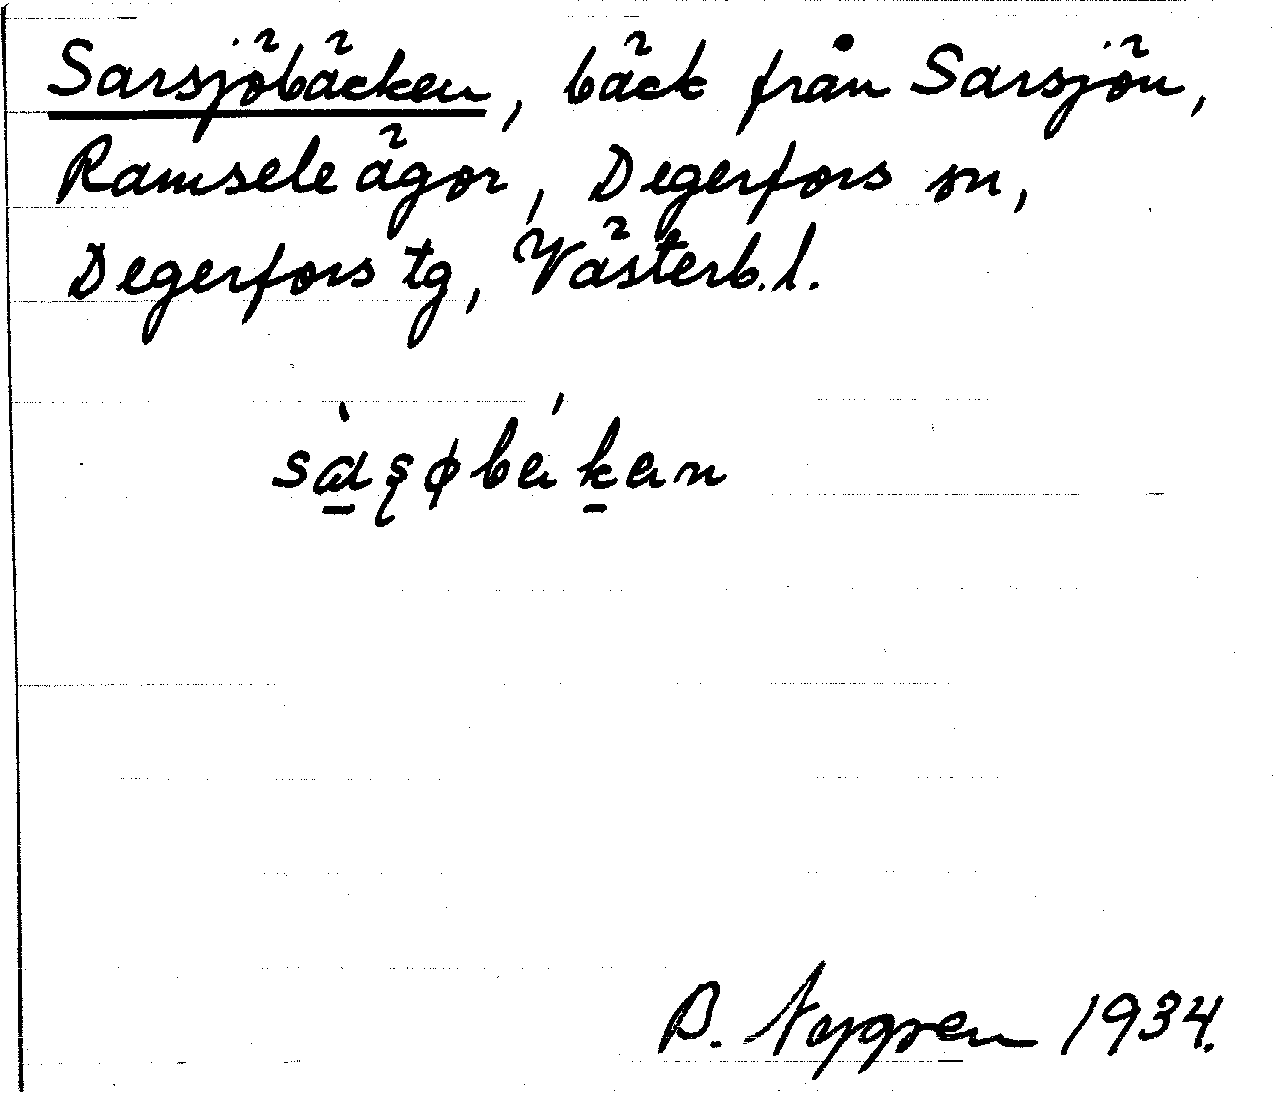 Sarsjöbäcken, bäck från Sarsjön,
Ramsele ägor, Degerfors sn,
Degerfors tg, Västerb. l.
B. Nygren 1934.